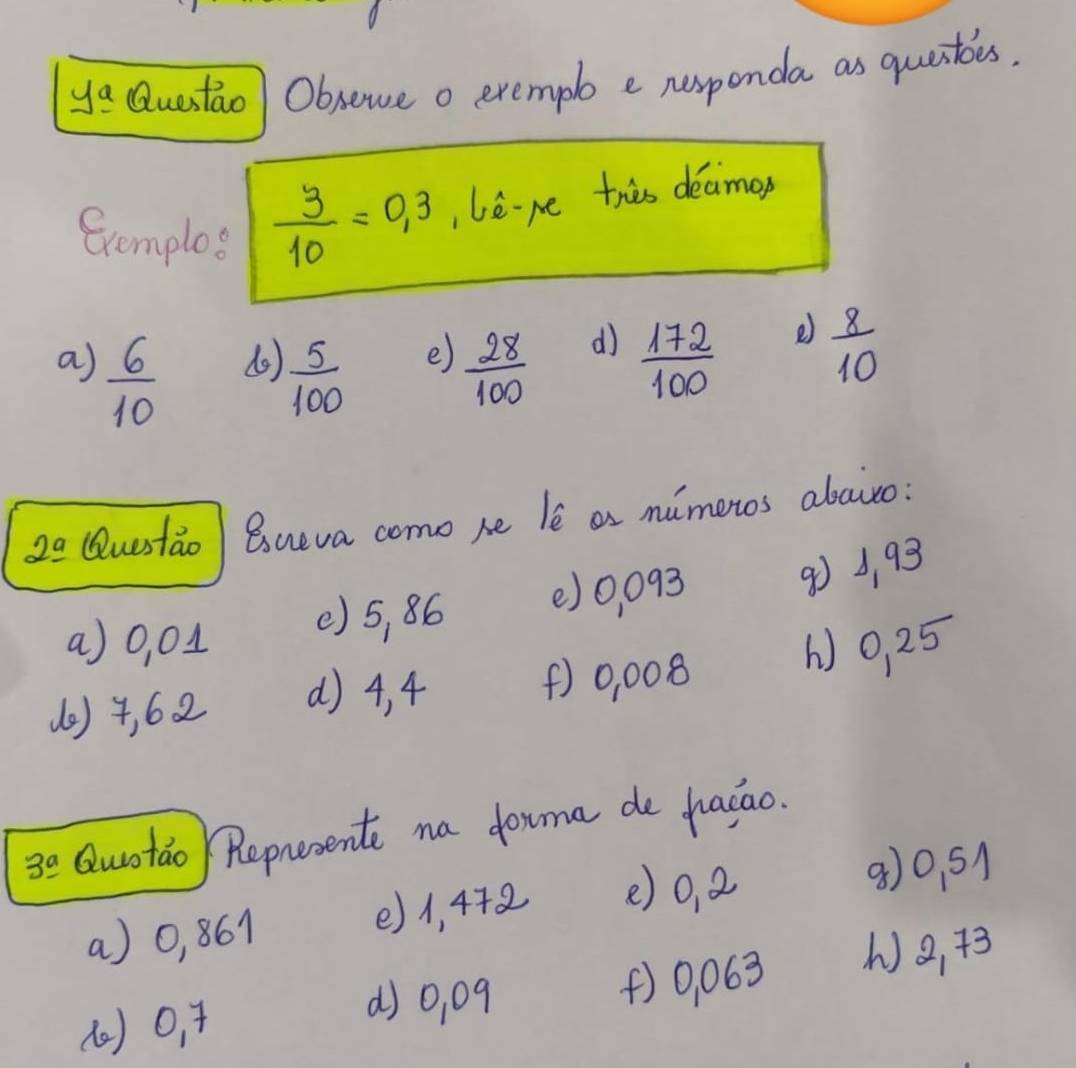 1ª Questão Observe o exemplo e responda as questões.
Exemplo: 3/10 = 0,3, lê-se três décimos
a) 6/10 b) 5/100 c) 28/100 d) 172/100 e) 8/10
2ª Questão Escreva como se lê os números abaixo:
a) 0,01 c) 5,86 e) 0,093 g) 1,93
b) 7,62 d) 4,4 f) 0,008 h) 0,25
3ª Questão Represente na forma de fração.
a) 0,861 c) 1,472 e) 0,2 g) 0,51
b) 0,7 d) 0,09 f) 0,063 h) 2,73